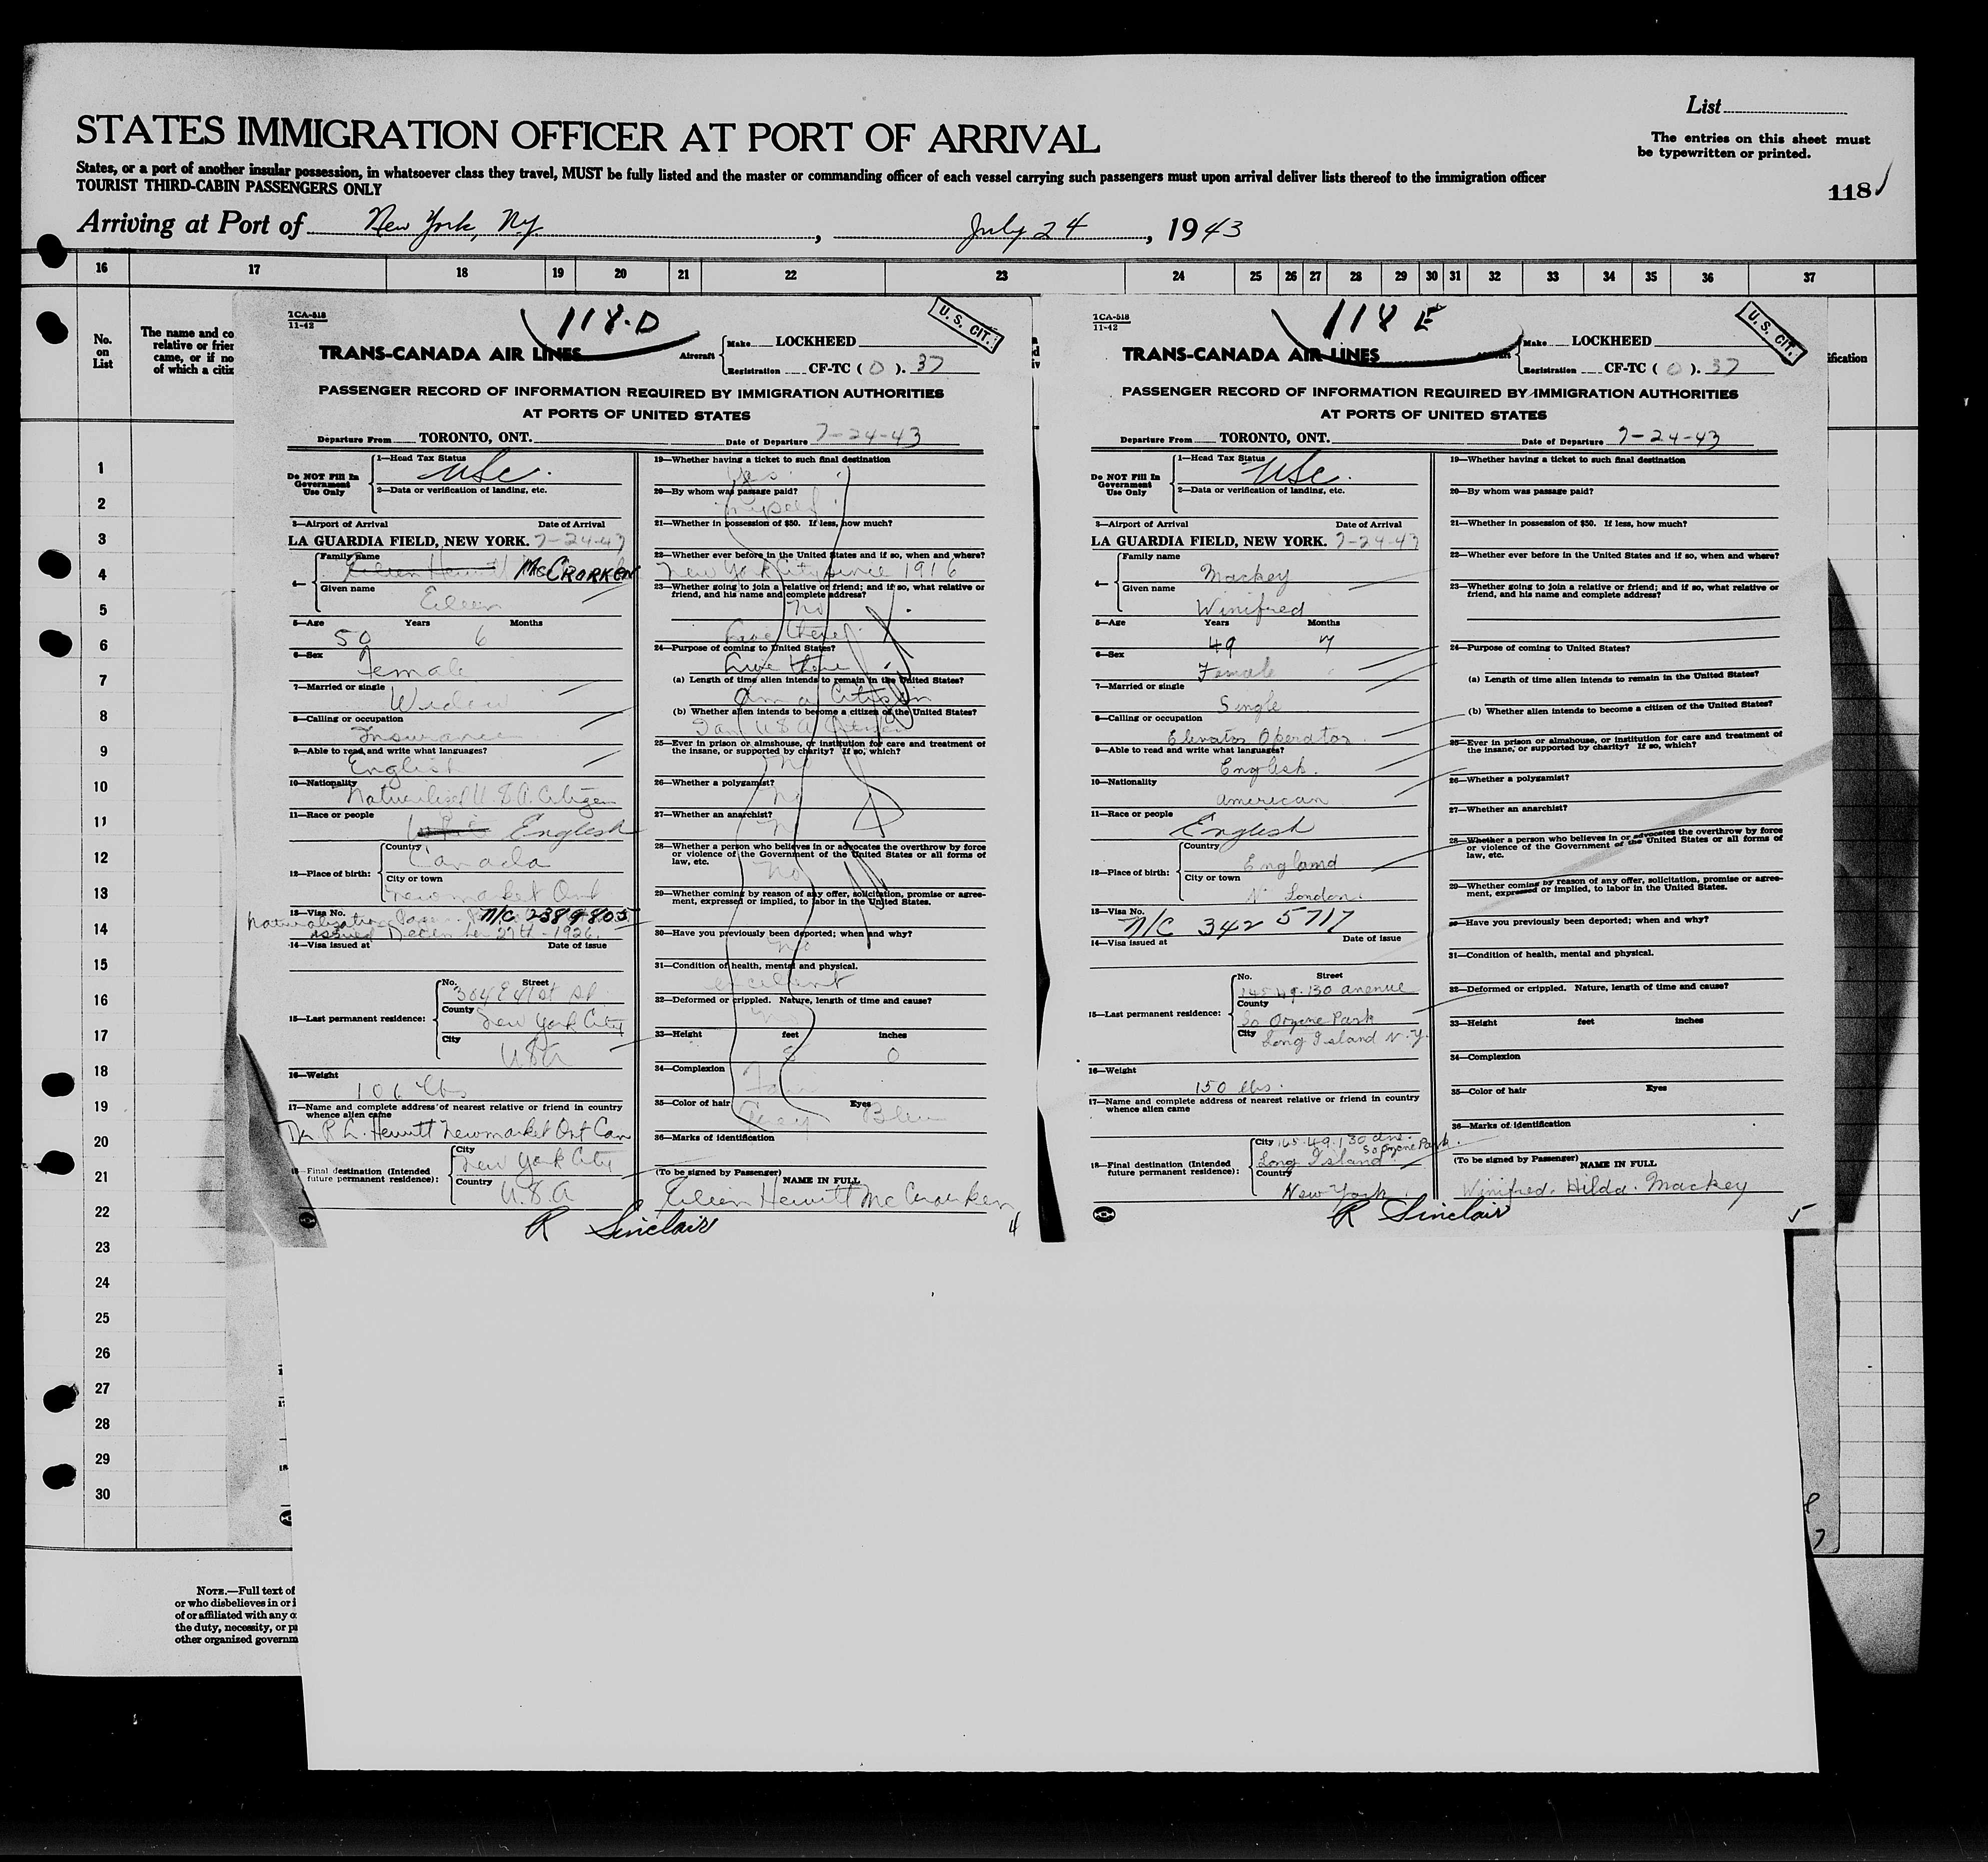 List
STATES IMMIGRATION OFFICER AT PORT OF ARRIVAL
The entries on this sheet must
be typewritten or printed.
States, or a port of another insular possession, in whatsoever class they travel, MUST be fully listed and the master or commanding officer of each vessel carrying such passengers must upon arrival deliver lists thereof to the immigration officer
TOURIST THIRD-CABIN PASSENGERS ONLY
118
Arriving at Port of New York, Ny, July 24, 1943
16 17 18 19 20 21 22 23 24 25 26 27 28 29 30 31 32 33 34 35 36 37
No.
on
List
The name and co
relative or frier
came, or if no
of which a citiz
ification
1
2
3
4
5
6
7
8
9
10
11
12
13
14
15
16
17
18
19
20
21
22
23
24
25
26
27
28
29
30
NOTE.—Full text of
or who disbelieves in or i
of or affiliated with any o
the duty, necessity, or p
other organized governm
TCA-518
11-42
118-D
U. S. CIT.
TRANS-CANADA AIR LINES
Aircraft
Make LOCKHEED
Registration CF-TC ( O ). 37
PASSENGER RECORD OF INFORMATION REQUIRED BY IMMIGRATION AUTHORITIES
AT PORTS OF UNITED STATES
Departure From TORONTO, ONT. Date of Departure 7-24-43
Do NOT Fill In
Government
Use Only
1—Head Tax Status
USC.
2—Data or verification of landing, etc.
3—Airport of Arrival Date of Arrival
LA GUARDIA FIELD, NEW YORK. 7-24-43
4—
Family name
Eileen Hewitt McCRORKEN
Given name
Eileen
5—Age Years Months
50 6
6—Sex
Female
7—Married or single
Widow
8—Calling or occupation
Insurance
9—Able to read and write what languages?
English
10—Nationality
Naturalized U.S.A. Citizen
11—Race or people
English
12—Place of birth:
Country
Canada
City or town
Newmarket Ont
13—Visa No.
N/C 2389805
Naturalization
issued December 27th - 1926.
14—Visa issued at Date of issue
15—Last permanent residence:
No. Street
304 E 41st St.
County
New York City
City
USA
16—Weight
106 lbs
17—Name and complete address of nearest relative or friend in country
whence alien came
Hewitt Newmarket Ont Can
18—Final destination (Intended
future permanent residence):
City
New York City
Country
U.S.A
19—Whether having a ticket to such final destination
Yes.
20—By whom was passage paid?
Myself
21—Whether in possession of $50. If less, how much?
22—Whether ever before in the United States and if so, when and where?
New York City since 1916
23—Whether going to join a relative or friend; and if so, what relative or
friend, and his name and complete address?
No
24—Purpose of coming to United States?
Live there
(a) Length of time alien intends to remain in the United States?
Am a Citizen
(b) Whether alien intends to become a citizen of the United States?
I am U S A Citizen
25—Ever in prison or almshouse, or institution for care and treatment of
the insane, or supported by charity? If so, which?
No
26—Whether a polygamist?
No
27—Whether an anarchist?
No
28—Whether a person who believes in or advocates the overthrow by force
or violence of the Government of the United States or all forms of
law, etc.
No
29—Whether coming by reason of any offer, solicitation, promise or agree-
ment, expressed or implied, to labor in the United States.
30—Have you previously been deported; when and why?
No
31—Condition of health, mental and physical.
excellent
32—Deformed or crippled. Nature, length of time and cause?
No
33—Height feet inches
0
34—Complexion
Fair
35—Color of hair Eyes
Grey Blue
36—Marks of identification
(To be signed by Passenger)
NAME IN FULL
Eileen Hewitt McCrorken
R Sinclair
4
TCA-518
11-42
118 E
U. S. CIT.
TRANS-CANADA AIR LINES
Aircraft
Make LOCKHEED
Registration CF-TC ( O ). 37
PASSENGER RECORD OF INFORMATION REQUIRED BY IMMIGRATION AUTHORITIES
AT PORTS OF UNITED STATES
Departure From TORONTO, ONT. Date of Departure 7-24-43
Do NOT Fill In
Government
Use Only
1—Head Tax Status
USC.
2—Data or verification of landing, etc.
3—Airport of Arrival Date of Arrival
LA GUARDIA FIELD, NEW YORK. 7-24-43
4—
Family name
Mackey
Given name
Winifred
5—Age Years Months
49 7
6—Sex
Female
7—Married or single
Single
8—Calling or occupation
Elevator Operator
9—Able to read and write what languages?
English.
10—Nationality
American
11—Race or people
English
12—Place of birth:
Country
England
City or town
N. London.
13—Visa No.
N/C 342 5717
14—Visa issued at Date of issue
15—Last permanent residence:
No. Street
145.49.130 avenue
County
So Ozone Park
City
Long Island N.Y.
16—Weight
150 lbs.
17—Name and complete address of nearest relative or friend in country
whence alien came
18—Final destination (Intended
future permanent residence):
City 145.49.130 ave.
So Ozone Park.
Long Island
Country
New York.
19—Whether having a ticket to such final destination
20—By whom was passage paid?
21—Whether in possession of $50. If less, how much?
22—Whether ever before in the United States and if so, when and where?
23—Whether going to join a relative or friend; and if so, what relative or
friend, and his name and complete address?
24—Purpose of coming to United States?
(a) Length of time alien intends to remain in the United States?
(b) Whether alien intends to become a citizen of the United States?
25—Ever in prison or almshouse, or institution for care and treatment of
the insane, or supported by charity? If so, which?
26—Whether a polygamist?
27—Whether an anarchist?
28—Whether a person who believes in or advocates the overthrow by force
or violence of the Government of the United States or all forms of
law, etc.
29—Whether coming by reason of any offer, solicitation, promise or agree-
ment, expressed or implied, to labor in the United States.
30—Have you previously been deported; when and why?
31—Condition of health, mental and physical.
32—Deformed or crippled. Nature, length of time and cause?
33—Height feet inches
34—Complexion
35—Color of hair Eyes
36—Marks of identification
(To be signed by Passenger)
NAME IN FULL
Winifred. Hilda. Mackey
R Sinclair
5